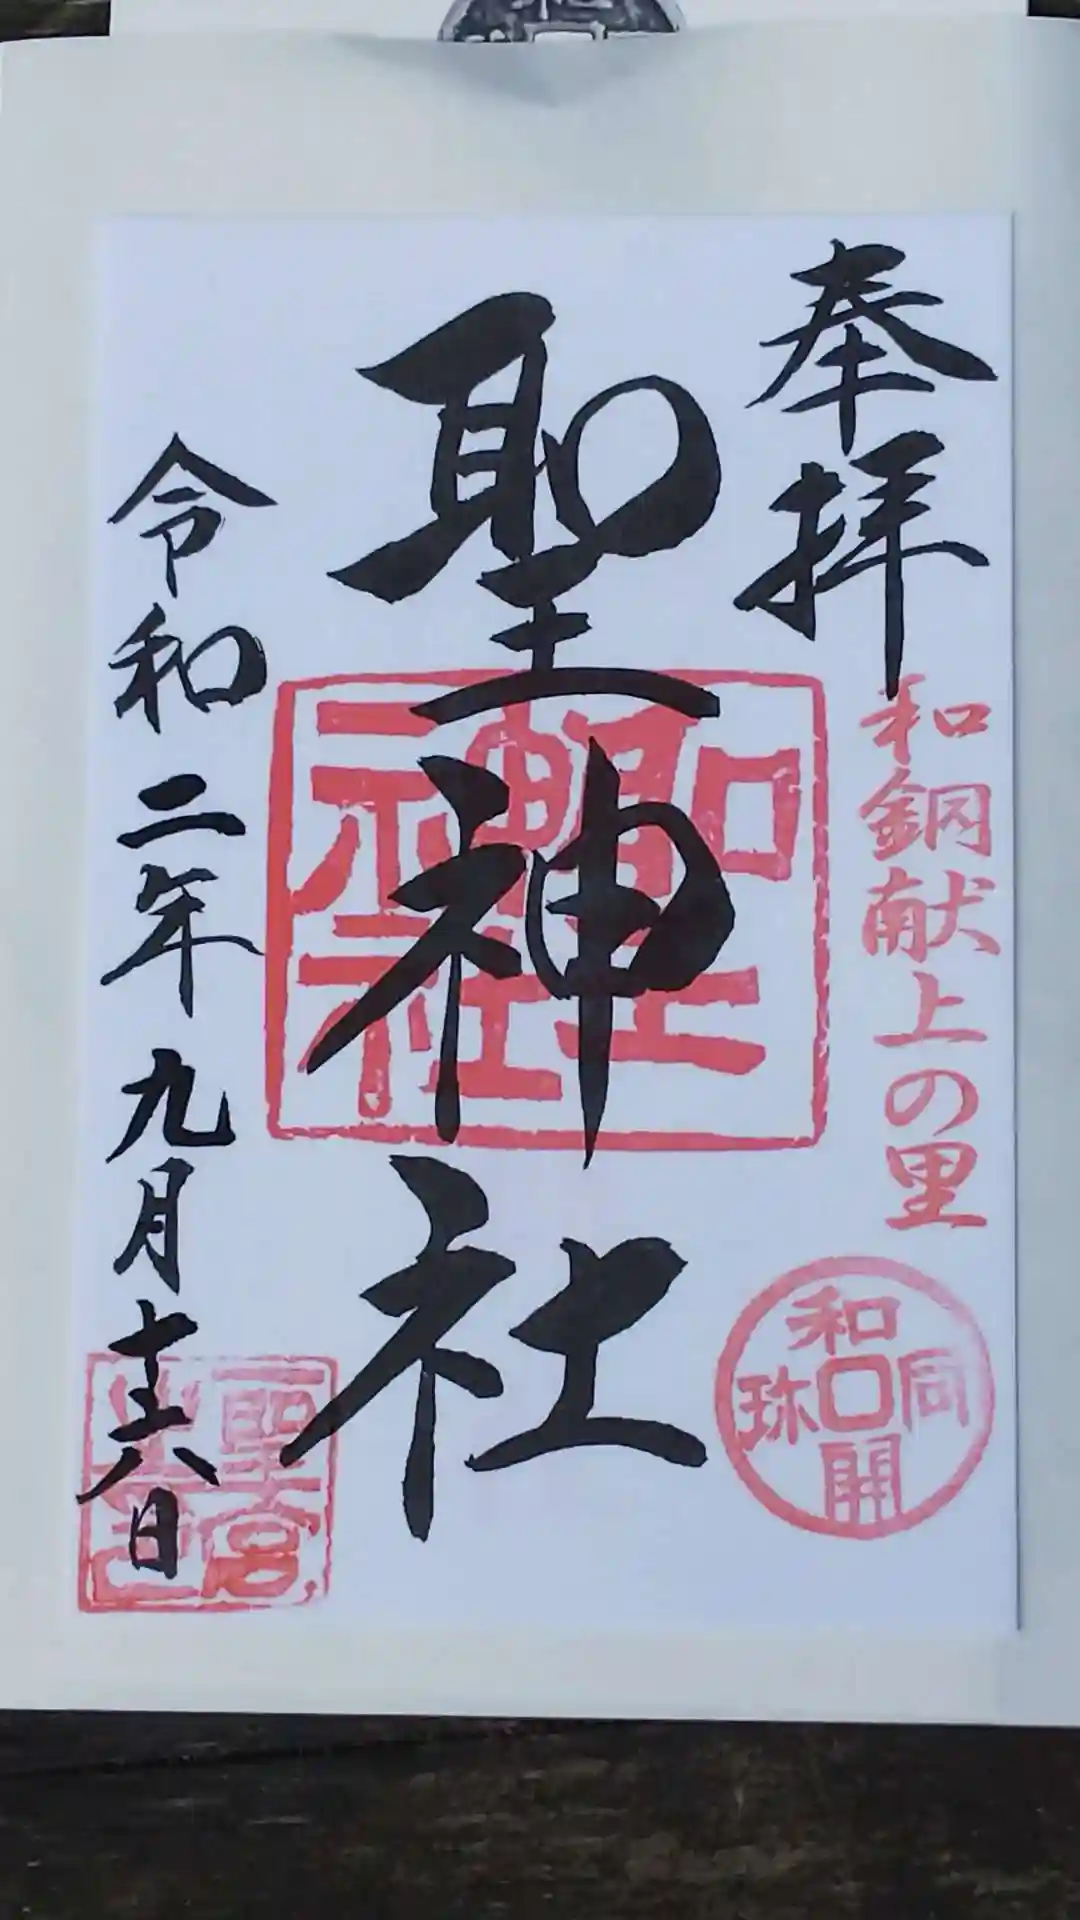 奉拝
和銅献上の里
和同開珎
聖神社
聖神社
令和二年九月十六日
聖宮